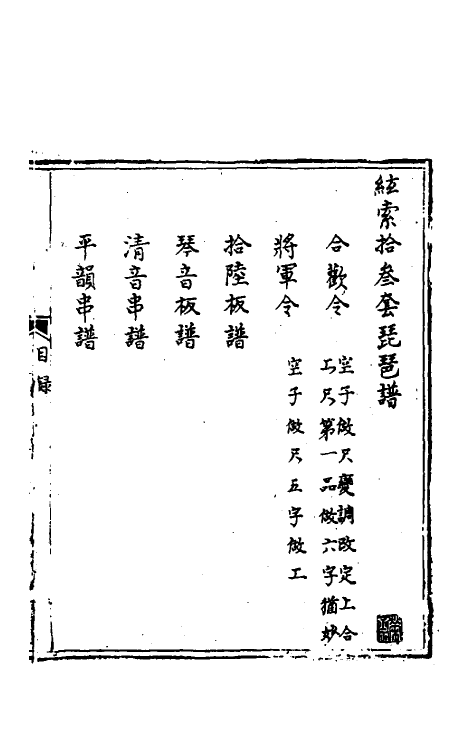 絃索拾叁套琵琶譜
合歡令
空子做尺變調改定上合
工尺第一品做六字猶妙
將軍令
空子做尺五字做工
拾陸板譜
琴音板譜
清音串譜
平韻串譜
目録